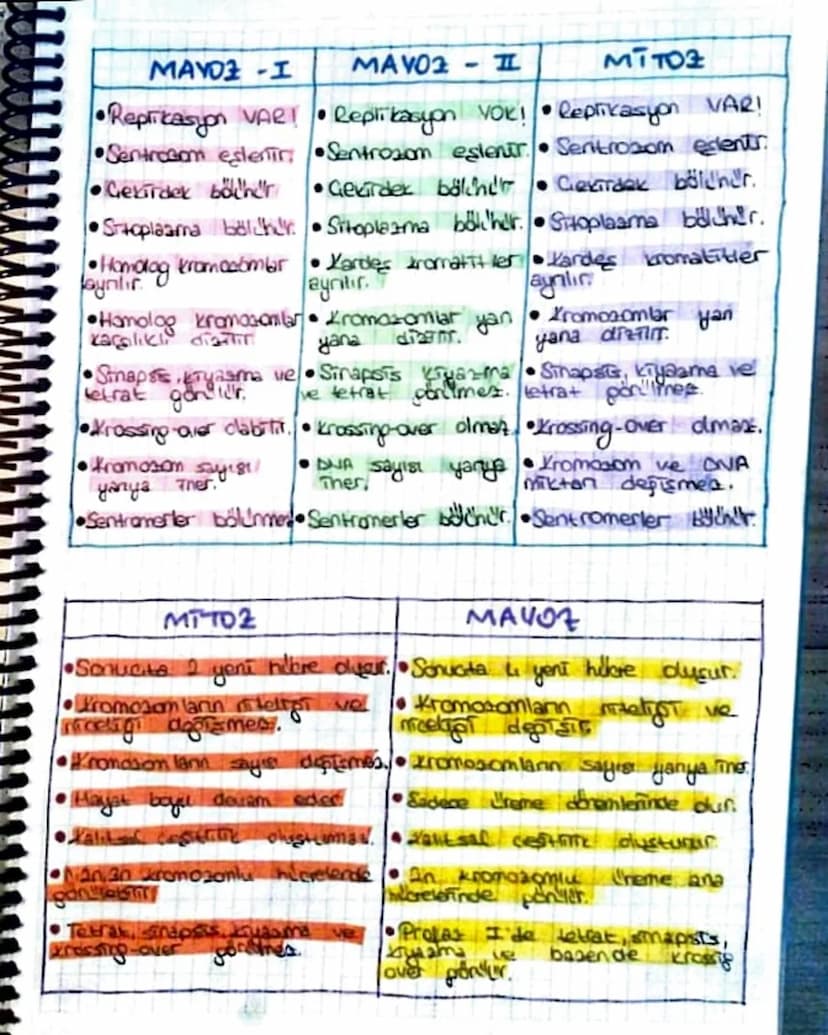 MAYOZ - I
• Replikasyon VAR!
• Sentrozom eşlenir.
• Çekirdek bölünür
• Sitoplazma bölünür.
• Homolog kromozomlar
ayrılır.
• Homolog kromozomlar
karşılıklı dizilir
• Sinapsis, kiyazma ve
tetrat görülür.
• Krossing-over olabilir.
• Kromozom sayısı
yarıya iner.
• Sentromerler bölünmez
MAYOZ - II
• Replikasyon YOK!
• Sentrozom eşlenir.
• Çekirdek bölünür
• Sitoplazma bölünür.
• Kardeş kromatitler
ayrılır.
• Kromozomlar yan
yana dizilir.
• Sinapsis kiyazma
ve tetrat görülmez.
• Krossing-over olmaz.
• DNA sayısı yarıya
iner.
• Sentromerler bölünür.
MİTOZ
• Replikasyon VAR!
• Sentrozom eşlenir.
• Çekirdek bölünür.
• Sitoplazma bölünür.
• Kardeş kromatitler
ayrılır.
• Kromozomlar yan
yana dizilir.
• Sinapsis, kiyazma ve
tetrat görülmez.
• Krossing-over olmaz.
• Kromozom ve DNA
miktarı değişmez.
• Sentromerler bölünür.
MİTOZ
• Sonuçta 2 yeni hücre oluşur.
• Kromozomların niteliği ve
niceliği değişmez.
• Kromozomların sayısı değişmez.
• Hayat boyu devam eder.
• Kalıtsal çeşitlilik oluşturmaz.
• n,2n,3n kromozomlu hücrelerde
görülebilir
• Tetrat, sinapsis, kiyazma ve
krossing-over görülmez.
MAYOZ
• Sonuçta 4 yeni hücre oluşur.
• Kromozomların niteliği ve
niceliği değişir
• Kromozomların sayısı yarıya iner.
• Sadece üreme dönemlerinde olur.
• Kalıtsal çeşitlilik oluşturur
• 2n kromozomlu üreme ana
hücrelerinde görülür.
• Profaz I'de tetrat, sinapsis,
kiyazma ve bazende krossig
over görülür.